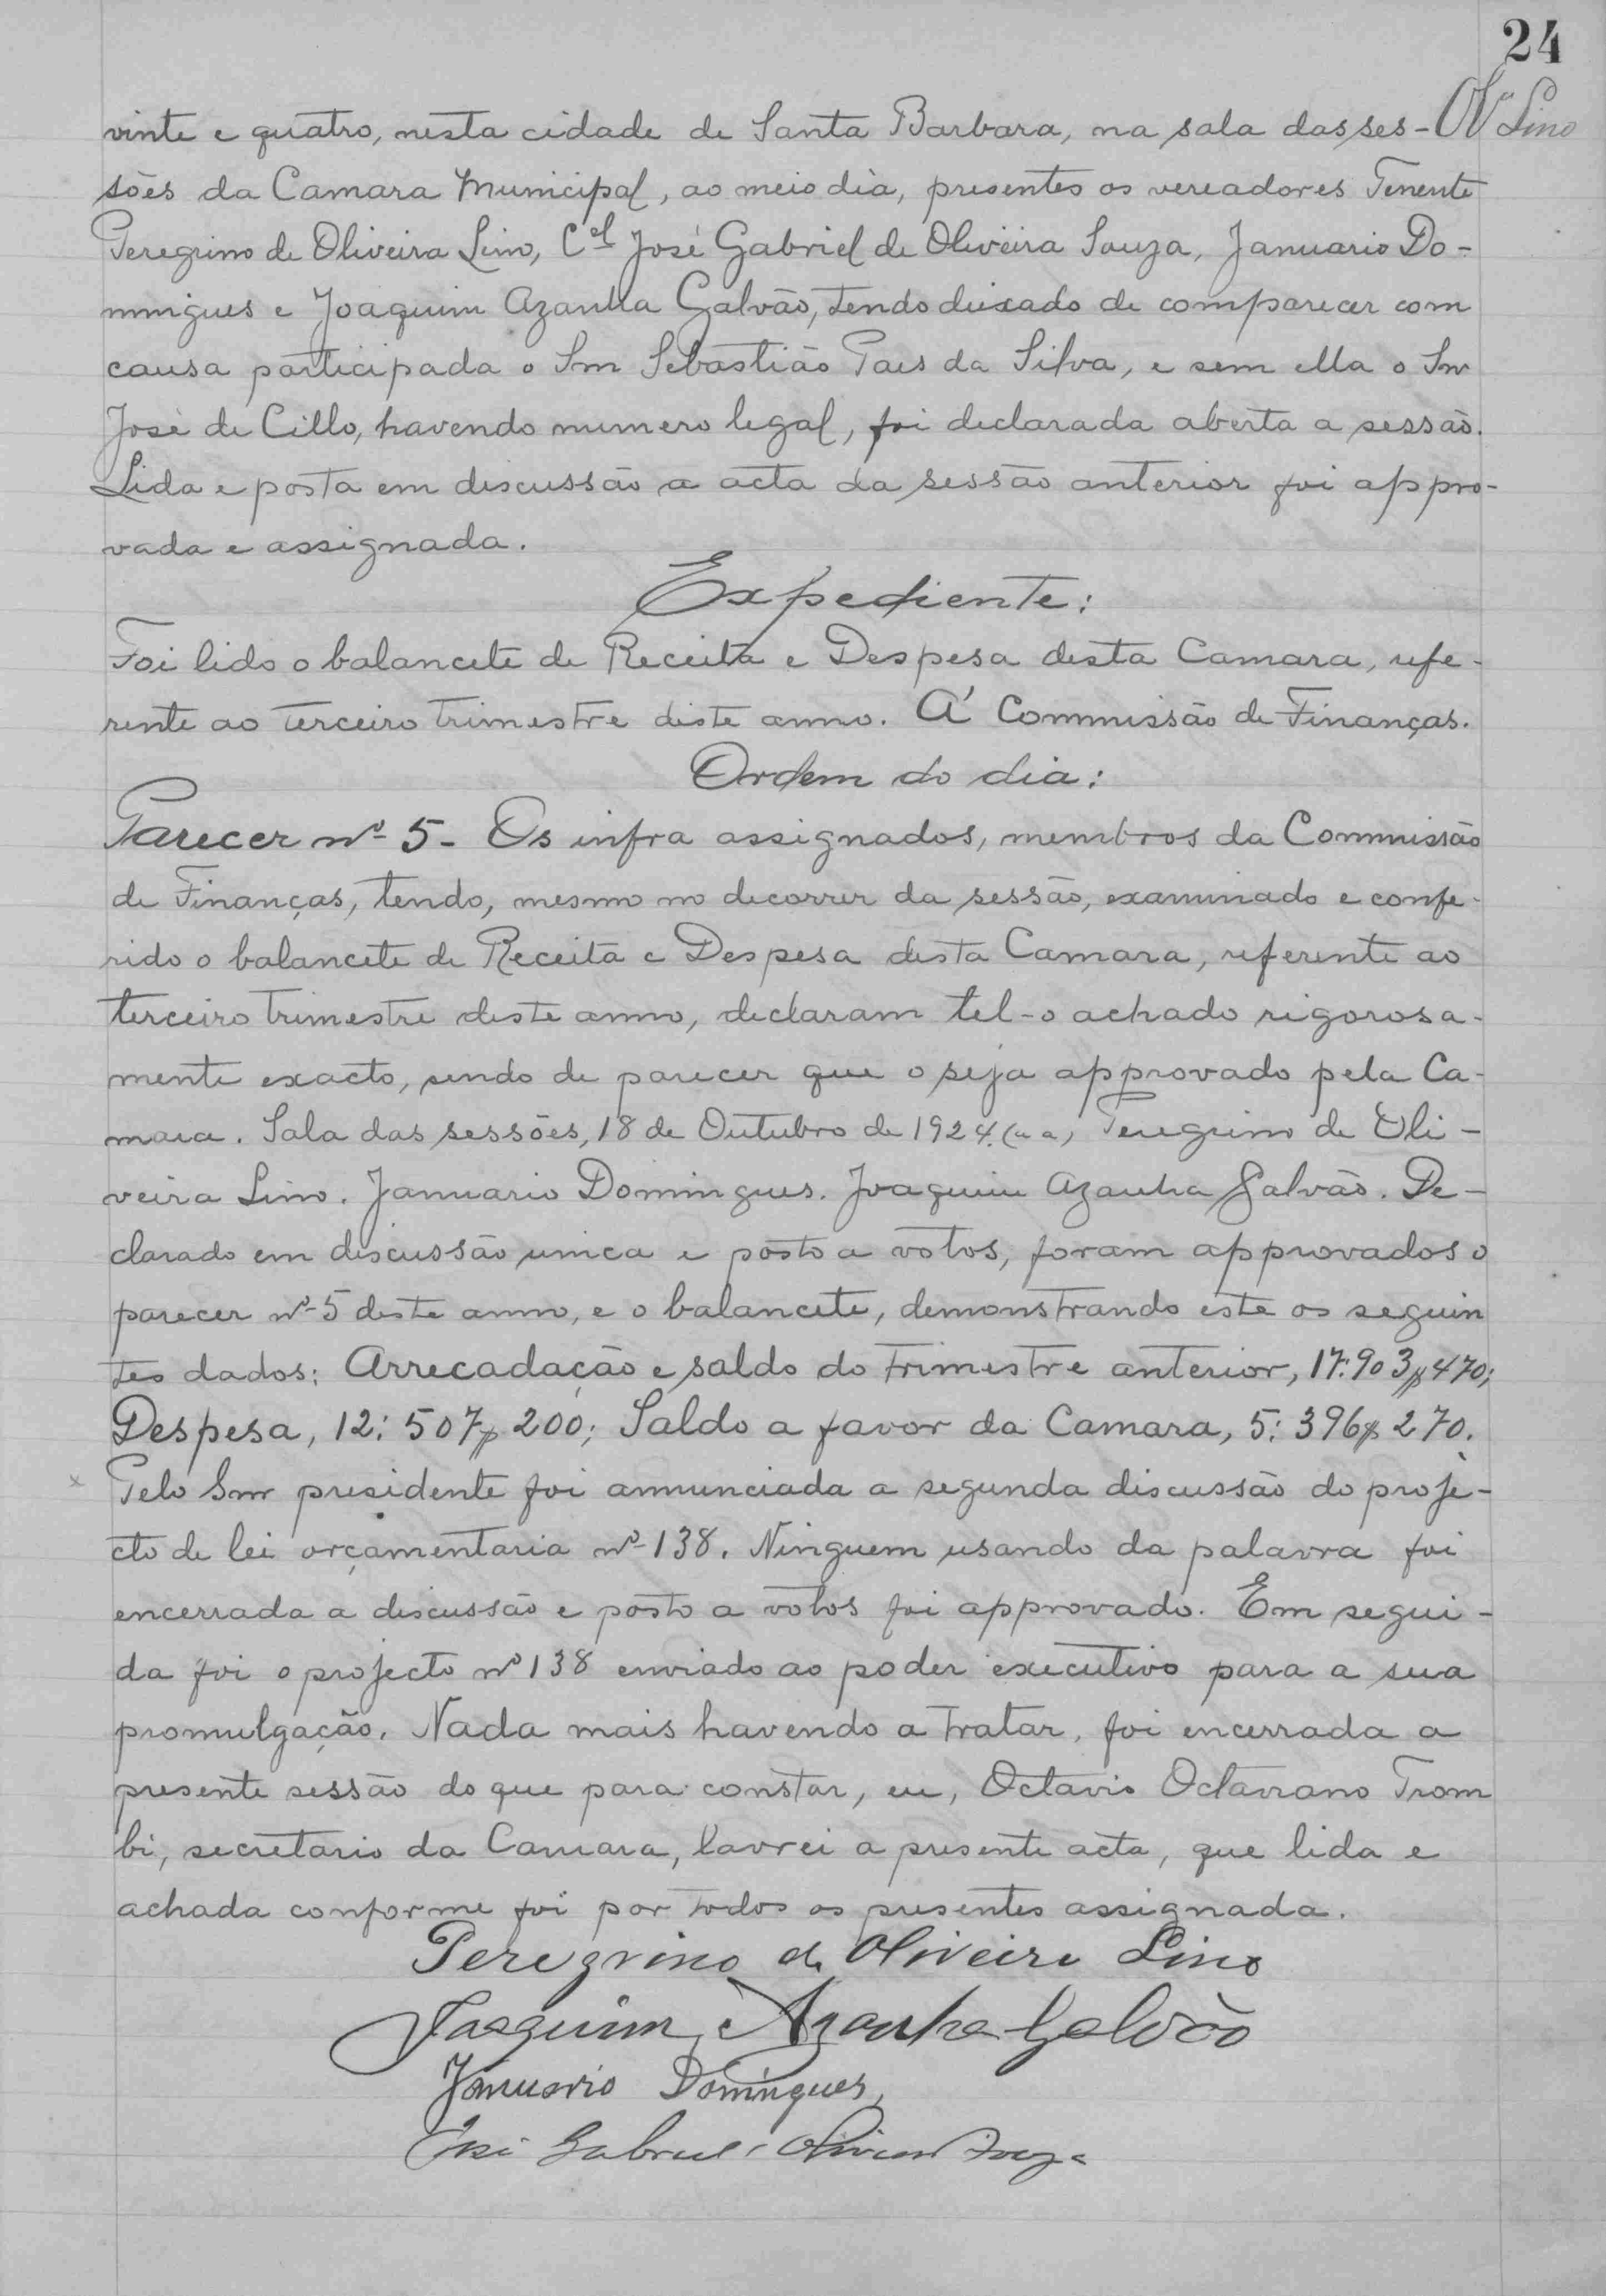 24
Olv.ª Lino
vinte e quatro, nesta cidade de Santa Barbara, na sala das ses-
sões da Camara Municipal, ao meio dia, presentes os vereadores Tenente
Peregrino de Oliveira Lino, Cel José Gabriel de Oliveira Souza, Januario Do-
mingues e Joaquim Azanha Galvão, tendo deixado de comparecer com
causa participada o Snr Sebastião Paes da Silva, e sem ella o Snr
José de Cillo, havendo numero legal, foi declarada aberta a sessão.
Lida e posta em discussão a acta da sessão anterior foi appro-
vada e assignada.
Expediente:
Foi lido o balancete de Receita e Despesa desta Camara, refe-
rente ao terceiro trimestre deste anno. Á Commissão de Finanças.
Ordem do dia:
Parecer nº 5- Os infra assignados, membros da Commissão
de Finanças, tendo, mesmo no decorrer da sessão, examinado e confe-
rido o balancete de Receita e Despesa desta Camara, referente ao
terceiro trimestre deste anno, declaram tel-o achado rigorosa-
mente exacto, sendo de parecer que o seja approvado pela Ca-
mara. Sala das sessões, 18 de Outubro de 1924. (a a) Peregrino de Oli-
veira Lino. Januario Domingues. Joaquim Azanha Galvão. De-
clarado em discussão unica e posto a votos, foram approvados o
parecer nº 5 deste anno, e o balancete, demonstrando este os seguin
tes dados: Arrecadação e saldo do trimestre anterior, 17:903$470;
Despesa, 12:507$200; Saldo a favor da Camara, 5:396$270.
Pelo Snr presidente foi annunciada a segunda discussão do proje-
cto de lei orçamentaria nº 138. Ninguem usando da palavra foi
encerrada a discussão e posto a votos foi approvado. Em segui-
da foi o projecto nº 138 enviado ao poder executivo para a sua
promulgação. Nada mais havendo a tratar, foi encerrada a
presente sessão do que para constar, eu, Octavio Octaviano Trom
bi, secretario da Camara, lavrei a presente acta, que lida e
achada conforme foi por todos os presentes assignada.
Peregrino de Oliveira Lino
Joaquim Azanha Galvão
Januario Domingues,
José Gabriel Oliveira Souza